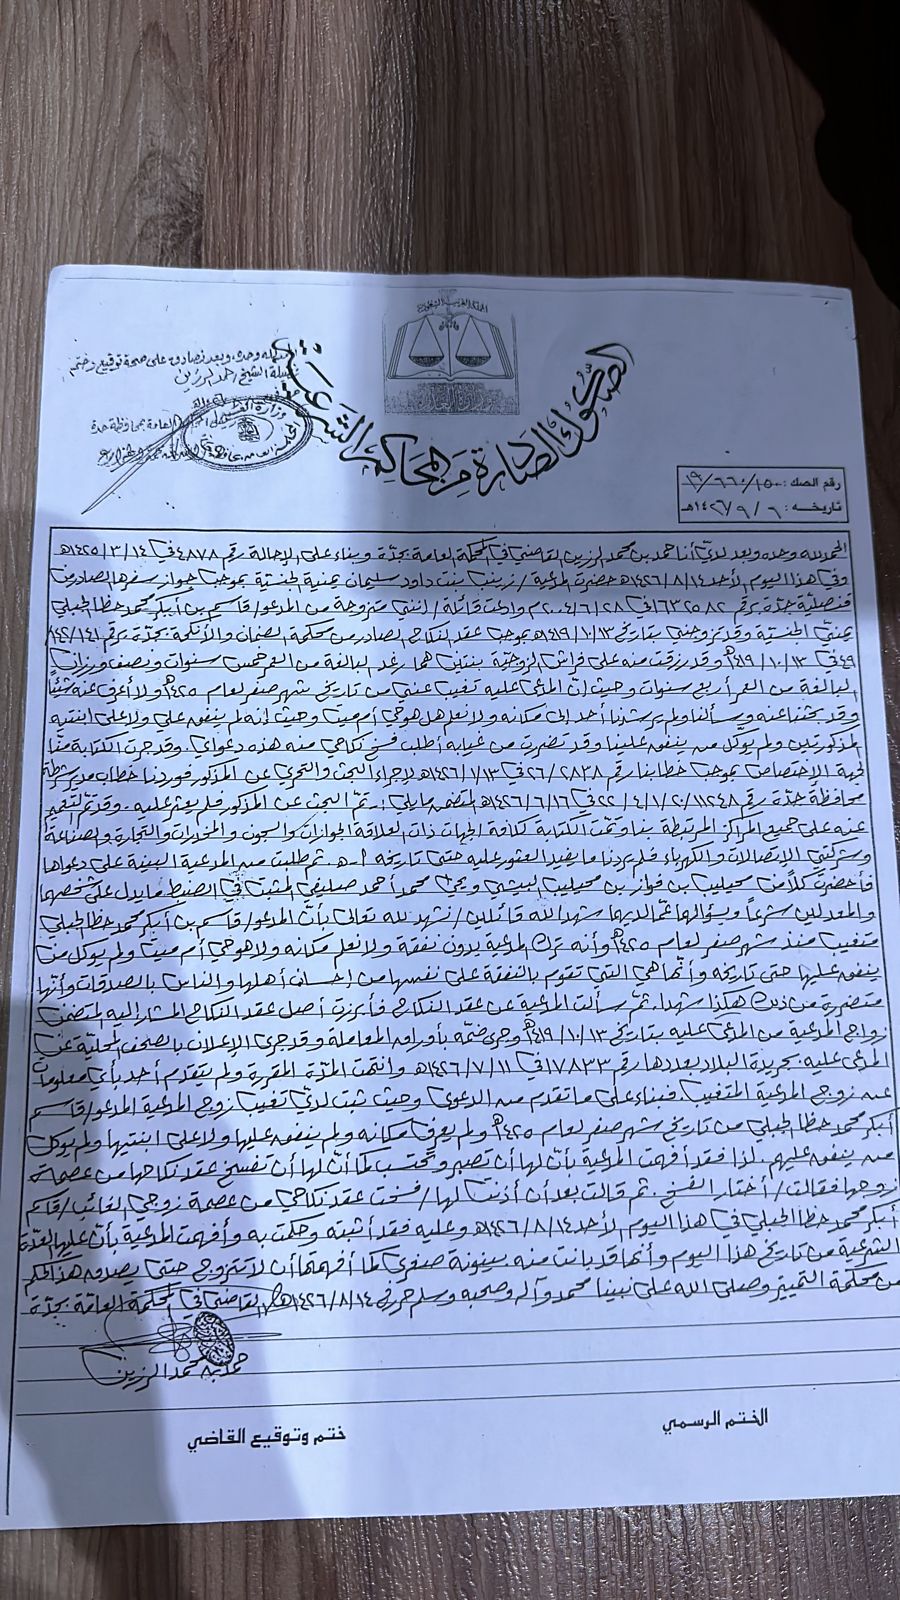 المملكة العربية السعودية
وزارة العدل
الصكوك الصادرة من المحاكم الشرعية
الحمد لله وحده، وبعد نصادق على صحة توقيع وختم
فضيلة الشيخ / حمد الرزين
العامة بمحافظة جدة
رقم الصك : ١٩/٦٦٠/١٥٠
تاريخه : ١٤٢٦/٩/٦هـ
الحمد لله وحده وبعد لديّ أنا حمد بن محمد الرزين القاضي في المحكمة العامة بجدّة وبناء على الإحالة رقم ٤٨٧٨ في ١٤٢٥/٣/١٤هـ
وفي هذا اليوم الأحد ١٤٢٦/٨/١٤هـ حضرت المدعية / زينب بنت داود سليمان يمنية الجنسية بموجب جواز سفرها الصادر من
قنصلية جدّة برقم ٦٣٢٥٨٢ في ٢٠٠٤/٦/٢٨م وادعت قائلة / إنني متزوجة من المدعو / قاسم بن أبكر محمد حظا الجبلي
يمنيّ الجنسية وقد تزوجني بتاريخ ١٤١٩/١٠/١٣هـ بموجب عقد النكاح الصادر من محكمة الضمان والأنكحة بجدّة برقم
٤٩ في ١٤١٩/١٠/١٣هـ وقد رزقت منه على فراش الزوجيّة بنتين هما رغد البالغة من العمر خمس سنوات ونصف ورزان
البالغة من العمر أربع سنوات وحيث إنّ المدعى عليه تغيب عني من تاريخ شهر صفر لعام ١٤٢٥هـ ولا أعرف عنه شيئاً
وقد بحثنا عنه وسألنا ولم يرشدنا أحد إلى مكانه ولا نعلم هل هو حي أم ميت وحيث إنه لم ينفق علي ولا على ابنتيه
المذكورتين ولم يوكّل من ينفق علينا وقد تضررت من غيابه أطلب فسخ نكاحي منه هذه دعواي. وقد جرت الكتابة منّا
لجهة الإختصاص بموجب خطابنا رقم ٢٦/٢٨٣٨ في ١٤٢٦/١/١٣هـ لإجراء البحث والتحري عن المذكور فوردنا خطاب مدير شرطة
محافظة جدّة رقم ٢٢/٤/١/٢٠/١١٢٤٨ في ١٤٢٦/٦/١٦هـ المتضمن مايلي: تمّ البحث عن المذكور فلم يعثر عليه وقد تمّ التعميم
عنه على جميع المراكز المرتبطة بنا وتمّت الكتابة لكافة الجهات ذات العلاقة الجوازات والسجون والمخدرات والتجارة والصناعة
وشركتي الإتصالات والكهرباء فلم يردنا ما يفيد العثور عليه حتى تاريخه أ.هـ. ثم طلبت من المدعية البينة على دعواها
فأحضرت كلاً من محيليب بن فواز بن محيليب البيشي ويحيى محمد أحمد صليفي المثبت في الضبط ما يدل على شخصهما
والمعدلين شرعاً وبسؤالهما عمّا لديهما شهدا لله قائلين / نشهد لله تعالى بأنّ المدعو / قاسم بن أبكر محمد حظا الجبلي
متغيب منذ شهر صفر لعام ١٤٢٥هـ وأنه ترك المدعية بدون نفقة ولا نعلم مكانه ولا هو حي أم ميت ولم يوكل من
ينفق عليها حتى تاريخه وأنّها هي التي تقوم بالنفقة على نفسها من إحسان أهلها والناس بالصدقات وأنّها
متضررة من ذلك هكذا شهدا. ثمّ سألت المدعية عن عقد النكاح فأبرزت أصل عقد النكاح المشار إليه المتضمن
زواج المدعية من المدعى عليه بتاريخ ١٤١٩/١٠/١٣هـ وجرى ضمّه بأوراق المعاملة وقد جرى الإعلان بالصحف المحليّة عن
المدعى عليه بجريدة البلاد بعددها رقم ١٧٨٣٣ في ١٤٢٦/٧/١١هـ وانتهت المدّة المقررة ولم يتقدم أحد بأي معلومات
عن زوج المدعية المتغيب. فبناء على ما تقدم من الدعوى وحيث ثبت لديّ تغيب زوج المدعية المدعو / قاسم
أبكر محمد حظا الجبلي من تاريخ شهر صفر لعام ١٤٢٥هـ ولم يعرف مكانه ولم ينفق عليها ولا على ابنتيها ولم يوكل
من ينفق عليهم. لذا فقد أفهمت المدعية بأنّ لها أن تصبر وتحتسب كما أنّ لها أن تفسخ عقد نكاحها من عصمة
زوجها فقالت / أختار الفسخ. ثم قالت بعد أن أذنت لها / فسخت عقد نكاحي من عصمة زوجي الغائب / قاسم
أبكر محمد حظا الجبلي في هذا اليوم الأحد ١٤٢٦/٨/١٤هـ وعليه فقد أثبته وحكمت به وأفهمت المدعية بأنّ عليها العدّة
الشرعية من تاريخ هذا اليوم وأنها قد بانت منه بينونة صغرى كما أفهمتها أن لا تتزوج حتى يصادق هذا الحكم
من محكمة التمييز وصلى الله على نبينا محمد وآله وصحبه وسلم حرر في ١٤٢٦/٨/١٤هـ القاضي في المحكمة العامة بجدّة
حمد بن محمد الرزين
الختم الرسمي
ختم وتوقيع القاضي